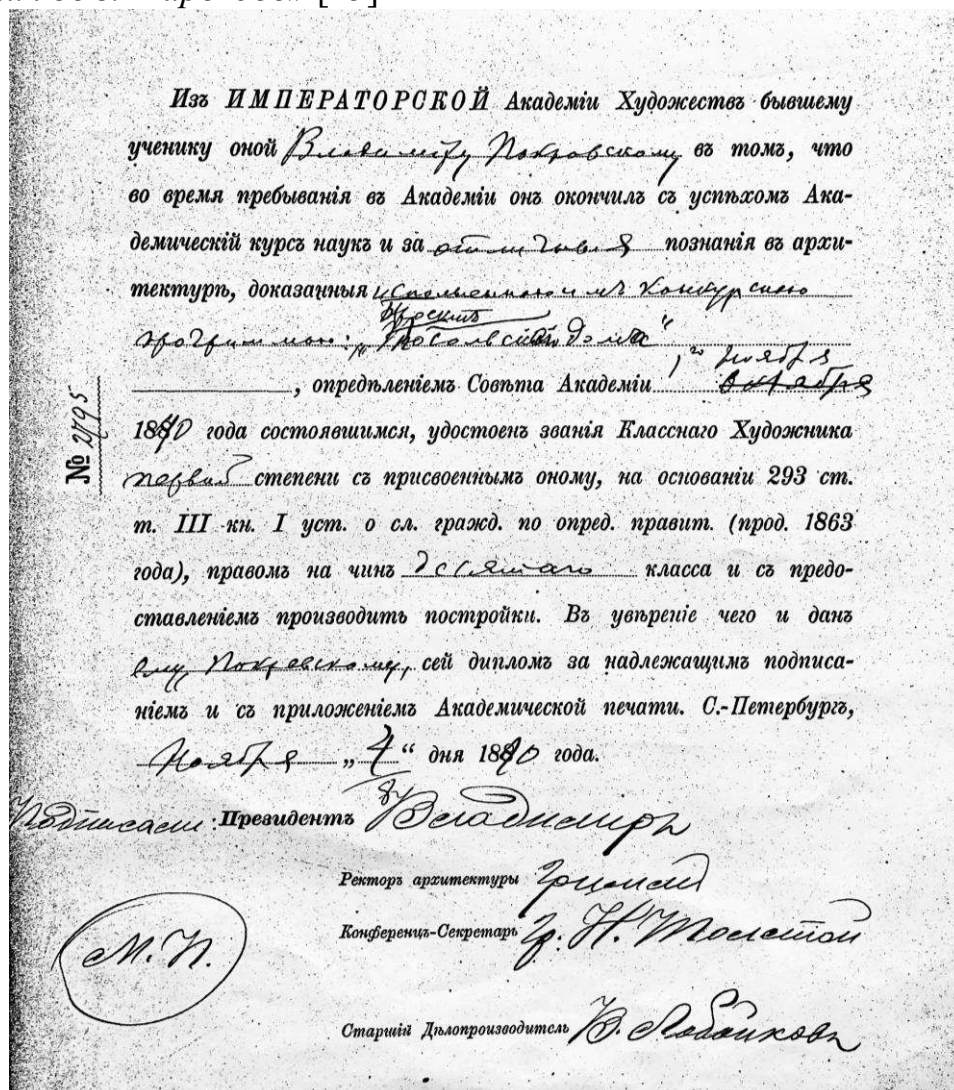 Изъ ИМПЕРАТОРСКОЙ Академіи Художествъ бывшему
ученику оной Владиміру Покровскому въ томъ, что
во время пребыванія въ Академіи онъ окончилъ съ успѣхомъ Ака-
демическій курсъ наукъ и за отличныя познанія въ архи-
тектурѣ, доказанныя исполненною имъ конкурсною
Проектъ
программою: „Посольскій дома“
1го ноября
, опредѣленіемъ Совѣта Академіи октября
№ 2795
1890 года состоявшимся, удостоенъ званія Класснаго Художника
первой степени съ присвоеннымъ оному, на основаніи 293 ст.
т. III кн. I уст. о сл. гражд. по опред. правит. (прод. 1863
года), правомъ на чинъ десятаго класса и съ предо-
ставленіемъ производить постройки. Въ увѣреніе чего и данъ
ему, Покровскому, сей дипломъ за надлежащимъ подписа-
ніемъ и съ приложеніемъ Академической печати. С.-Петербургъ,
Ноября „4“ дня 1890 года.
Подписали: Президентъ Владимиръ
Ректоръ архитектуры
Конференцъ-Секретарь Гр. И. Толстой
М. П.
Старшій Дѣлопроизводитель В. Лобойковъ